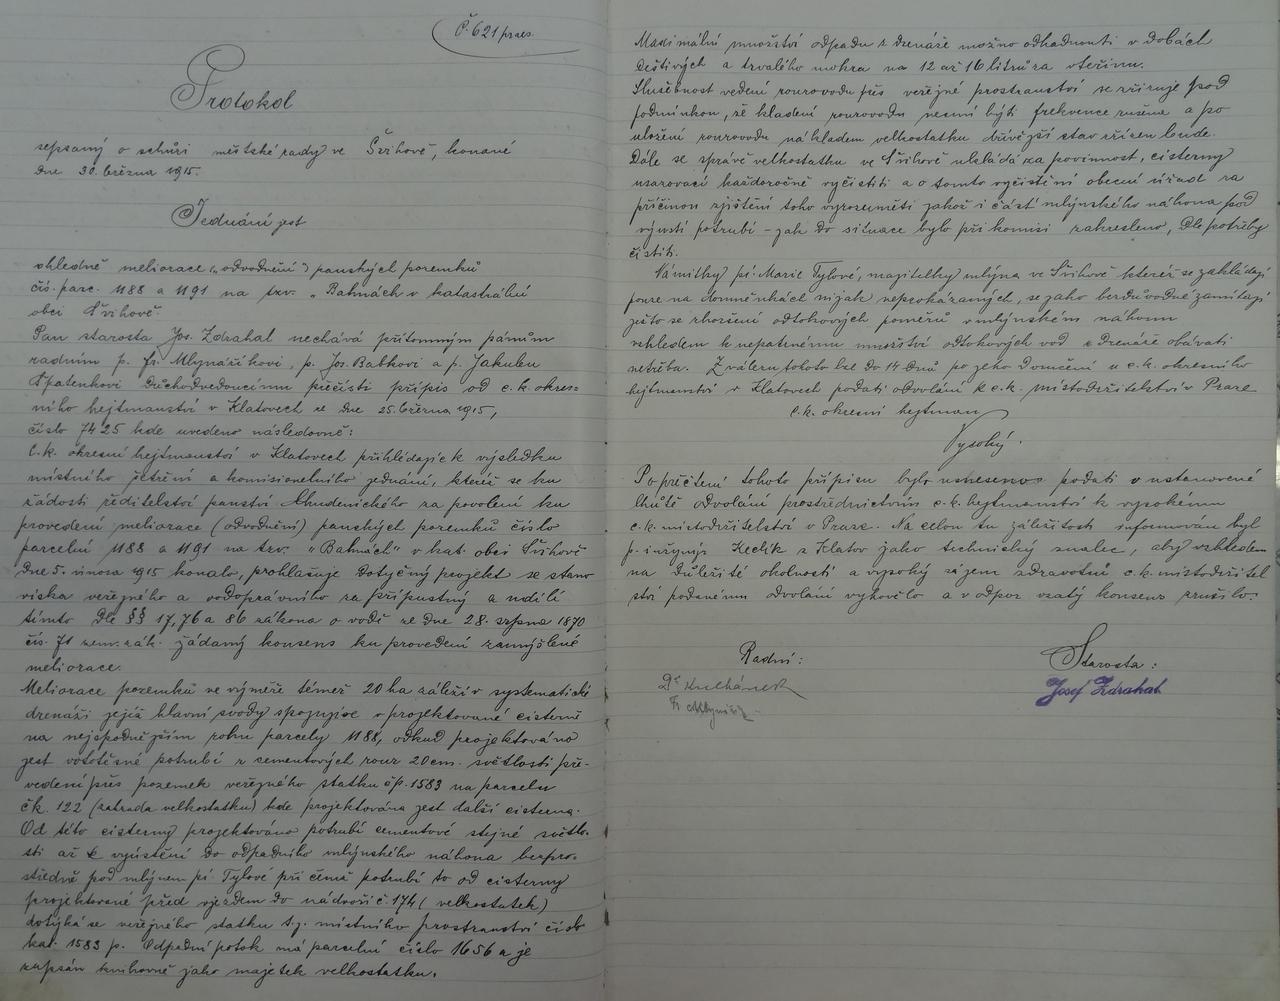 Č. 621 praes.
Protokol
sepsaný o schůzi městské rady ve Švihově, konané
dne 30. března 1915.
Jednáno jest
ohledně meliorace („odvodnění") panských pozemků
čís. parc. 1188 a 1191 na tzv. „Bahnách v katastrální
obci Švihově.
Pan starosta Jos. Zdrahal nechává přítomným pánům
radním p. Fr. Mlynaříkovi, p. Jos. Babkovi a p. Jakubu
Špatenkovi důchodvedoucímu přečísti přípis od c.k. okres-
ního hejtmanství v Klatovech ze dne 25. března 1915,
číslo 7425 kde uvedeno následovně:
C.k. okresní hejtmanství v Klatovech přihlédajíc k výsledku
místního šetření a komisionelního jednání, kteréž se ku
žádosti ředitelství panství Chudenického za povolení ku
provedení meliorace (odvodnění) panských pozemků číslo
parcelní 1188 a 1191 na tzv. „Bahnách" v kat. obci Švihově
dne 5. února 1915 konalo, prohlašuje dotyčný projekt se stano
viska veřejného a vodoprávního za přípustný a udílí
tímto dle §§ 17, 76 a 86 zákona o vodě ze dne 28. srpna 1870
čís. 71 zem. zák. žádaný konsens ku provedení zamýšlené
meliorace.
Meliorace pozemků ve výměře téměř 20 ha záleží v systematické
drenáži jejíž hlavní svody spojujíce v projektované cisterně
na nejspodnějším rohu parcely 1188, odkud projektováno
jest vodotěsné potrubí z cementových rour 20 cm. světlosti pře-
vedení přes pozemek veřejného statku čp. 1583 na parcelu
čk. 122 (zahrada velkostatku) kde projektována jest další cisterna.
Od této cisterny projektováno potrubí cementové stejné světlo-
sti až k vyústění do odpadního mlýnského náhona bezpro-
středně pod mlýnem pí. Tylové při čemž potrubí to od cisterny
projektované před vjezdem do nádvoří č. 174 (velkostatek)
dotýká se veřejného statku t.j. místního prostranství číslo
kat. 1583 p. Odpadní potok má parcelní číslo 1656 a je
zapsán knihovně jako majetek velkostatku.
Maximální množství odpadu z drenáže možno odhadnouti v dobách
deštivých a trvalého mokra na 12 až 16 litrů za vteřinu.
Služebnost vedení rourovodu přes veřejné prostranství se zřizuje pod
podmínkou, že kladení rourovodu nesmí býti frekvence rušena a po
uložení rourovodu nákladem velkostatku dřívější stav zřízen bude.
Dále se správě velkostatku ve Švihově ukládá za povinnost, cisterny
usazovací každoročně vyčistiti a o tomto vyčistění obecní úřad za
příčinou zjištění toho vyrozuměti jakož i část mlýnského náhona pod
výustí potrubí – jak do situace bylo při komisi zakresleno, dle potřeby
čistiti.
Námitky pí. Marie Tylové, majitelky mlýna ve Švihově kteréž se zakládají
pouze na domněnkách nijak neprokázaných, se jako bezdůvodné zamítají
ježto se zhoršení odtokových poměrů v mlýnském náhonu
vzhledem k nepatrnému množství odtokových vod z drenáže obávati
netřeba. Z nálezu tohoto lze do 14 dnů po jeho doručení u c.k. okresního
hejtmanství v Klatovech podati odvolání k c.k. místodržitelství v Praze
C.k. okresní hejtman
Vysoký.
Po přečtení tohoto přípisu bylo usneseno podati v ustanovené
lhůtě odvolání prostřednictvím c.k. hejtmanství k vysokému
c.k. místodržitelství v Praze. Na celou tu záležitost informován byl
p. inženýr Keclík z Klatov jako technický znalec, aby vzhledem
na důležité okolnosti a vysoký zájem zdravotní c.k. místodržitel
ství podanému odvolání vyhovělo a v odpor vzatý konsens zrušilo.
Radní:
Starosta:
Dr Kulhánek
Josef Zdrahal
Fr. Mlynařík